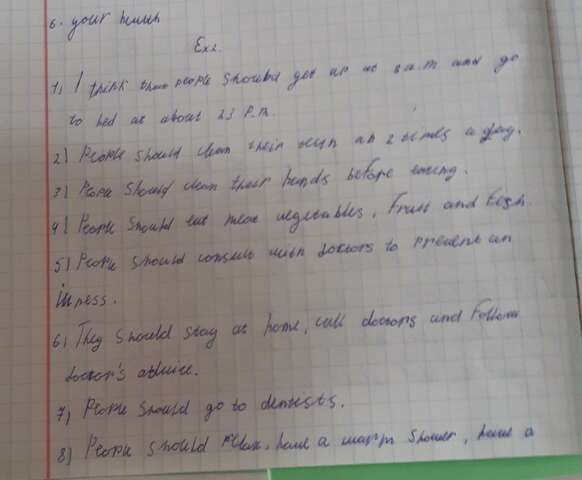 6. your health
Ex2.
1) I think that people should get up at 8 a.m and go
to bed at about 23 p.m.
2) People should clean their teeth at 2 times a day.
3) People should clean their hands before eating.
4) People should eat meat vegetables, fruit and fish.
5) People should consult with doctors to prevent an
illness.
6) They should stay at home, call doctors and follow
doctor's advice.
7) People should go to dentists.
8) People should relax, have a warm shower, have a